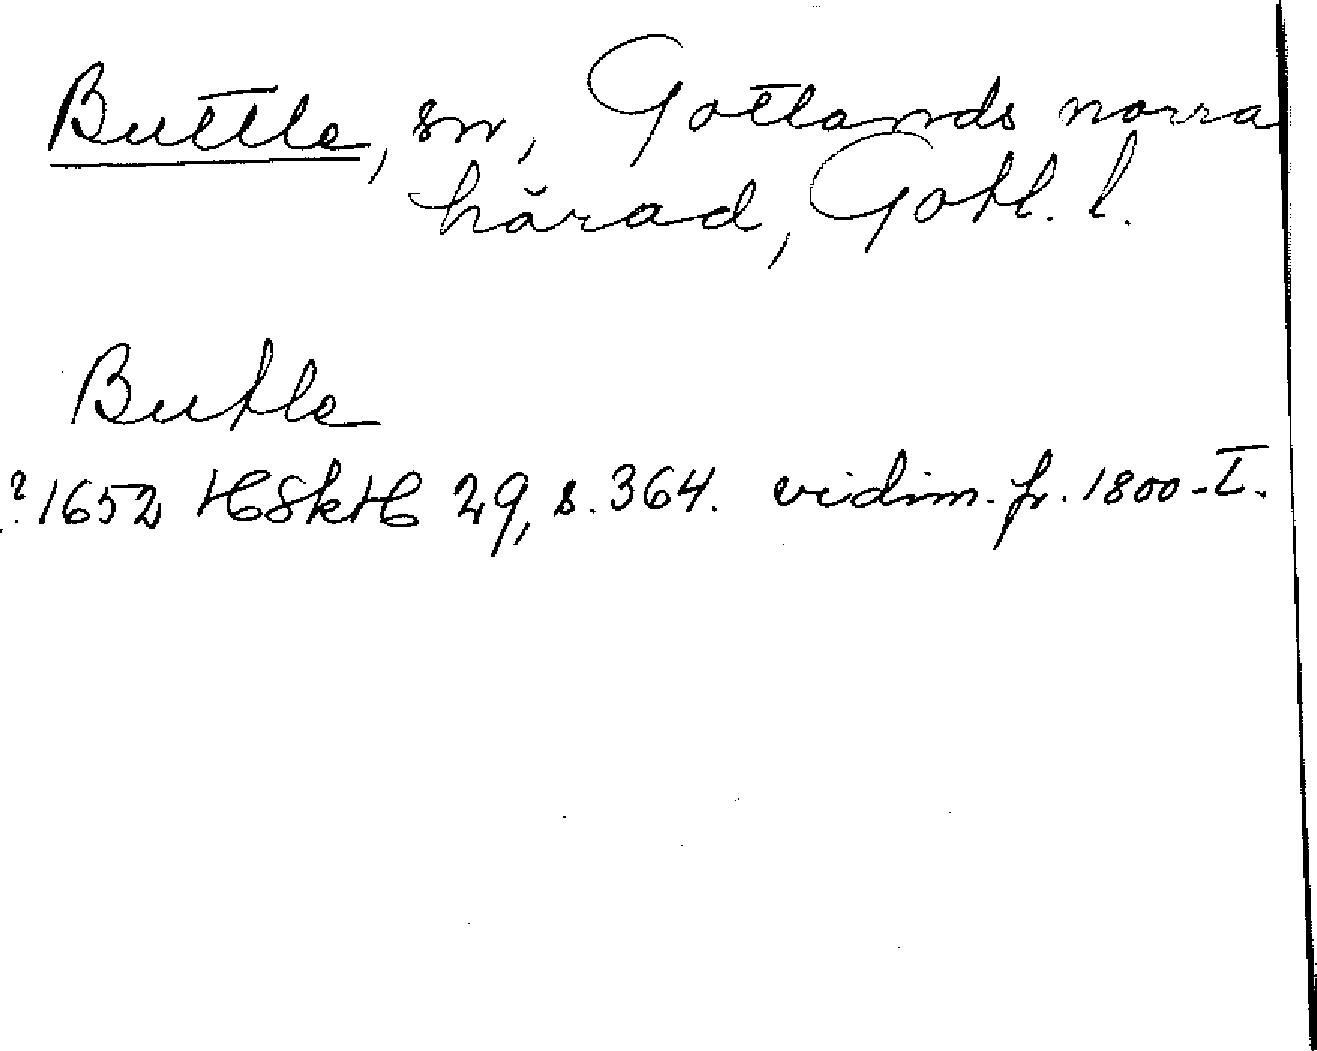 Buttle, sn, Gotlands norra
härad, Gotl. l.
Butle
? 1652 HSkH 29, s. 364. vidim. fr. 1800-t.